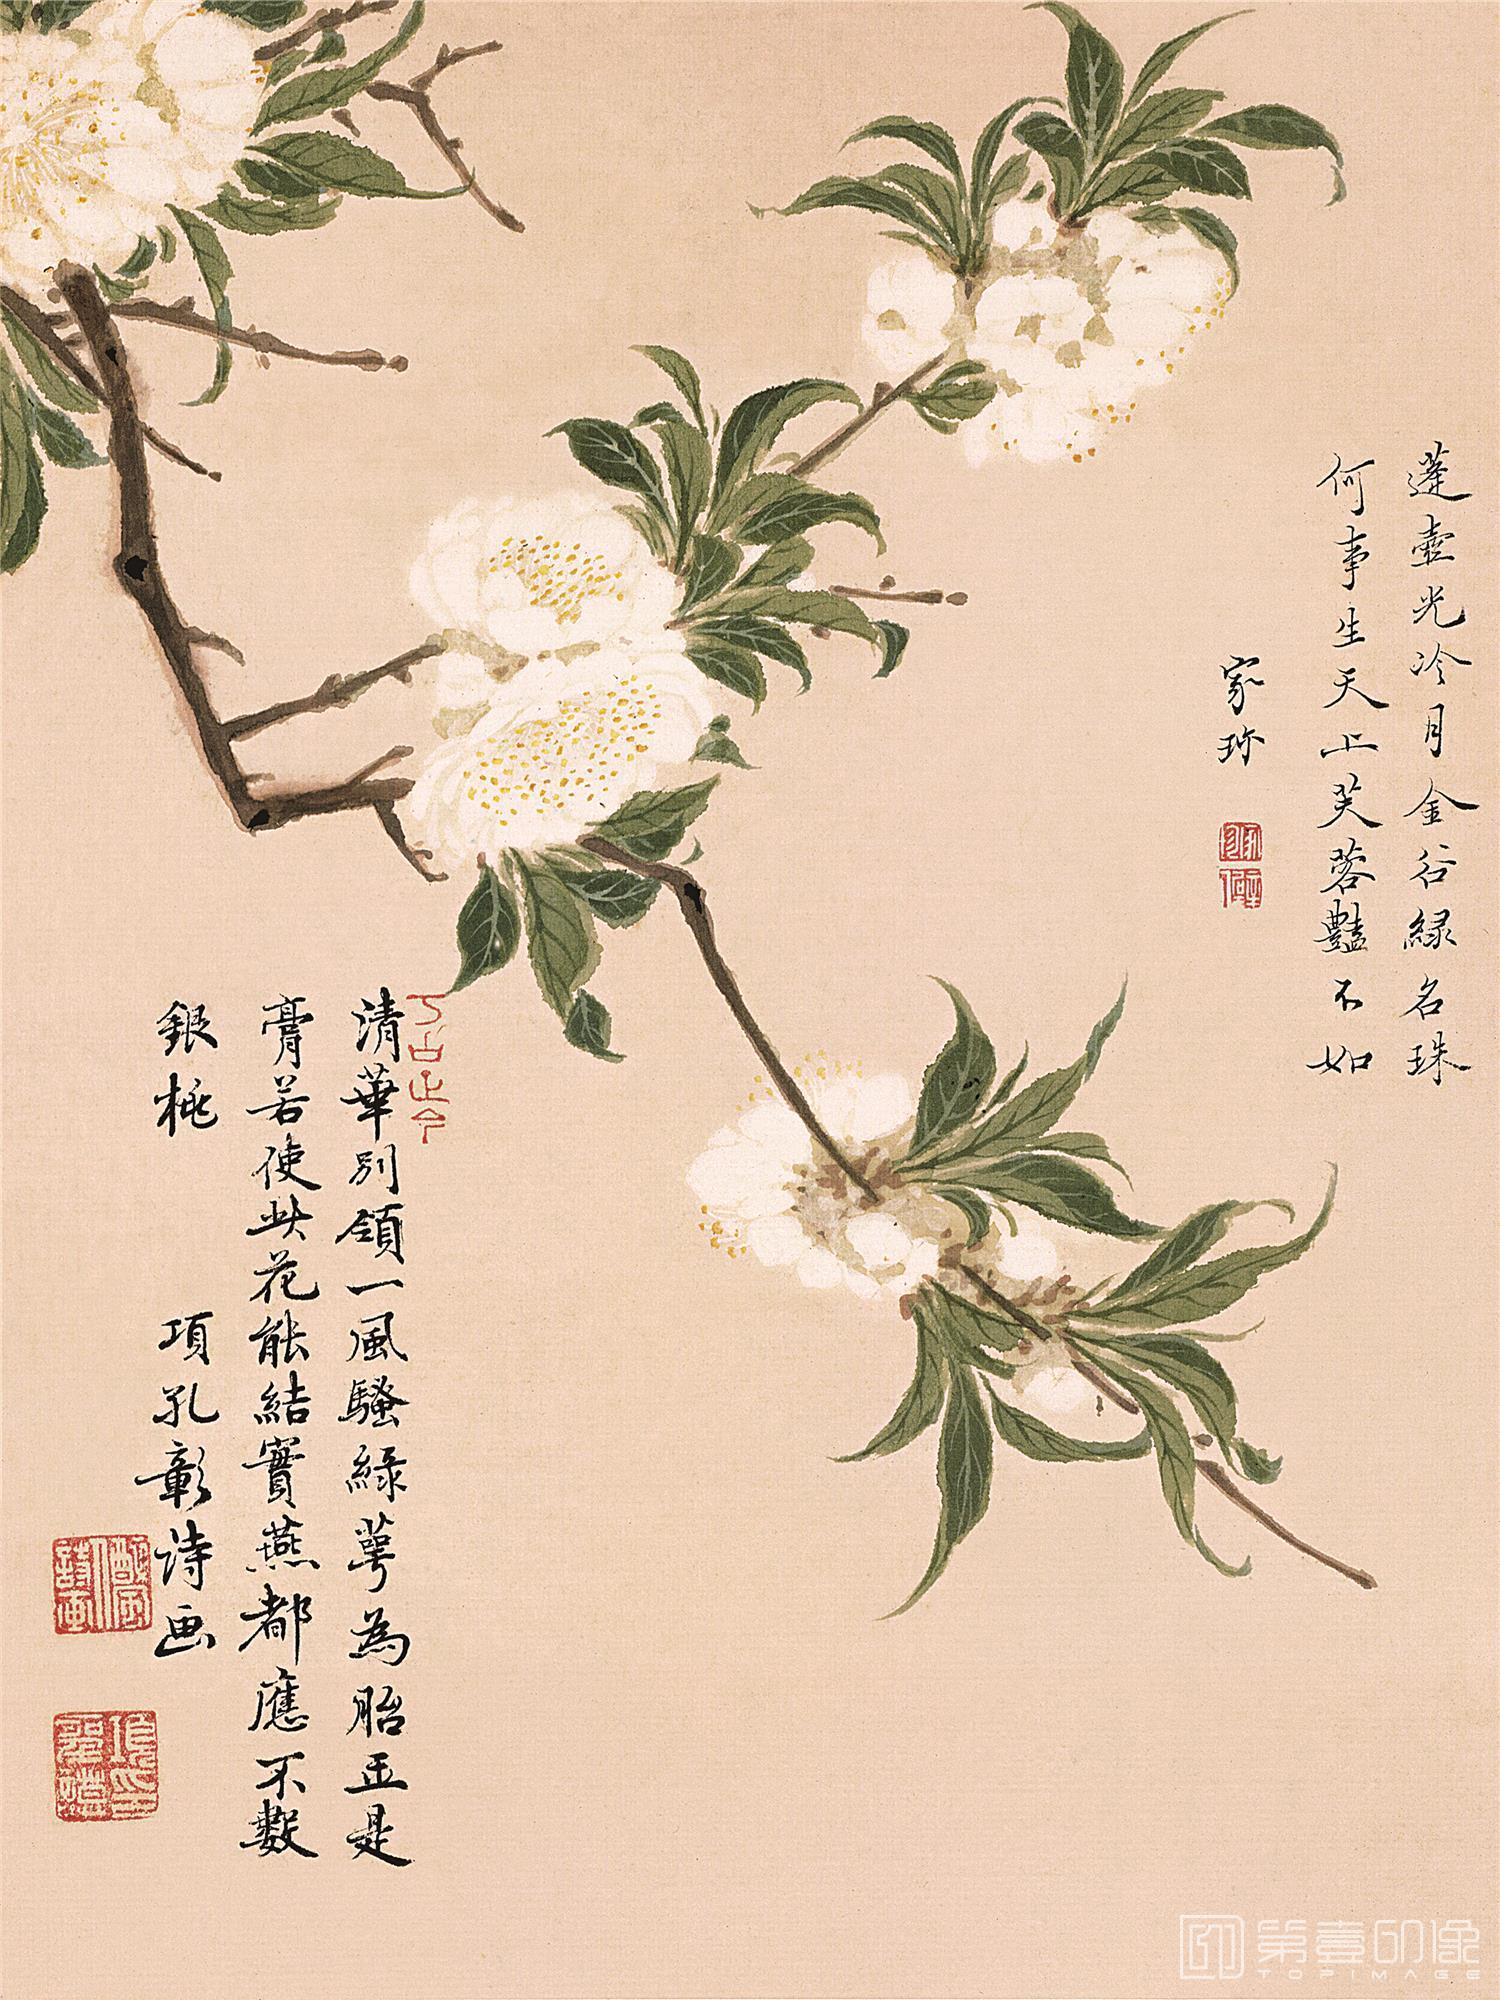 蓬壺光冷月金谷綠名珠
何事生天上芙蓉豔不如
家珍
清華別領一風騷綠萼為胎玉是
膏若使此花能結實燕都應不數
銀桃
項孔彰詩画
第壹印像
TOPIMAGE